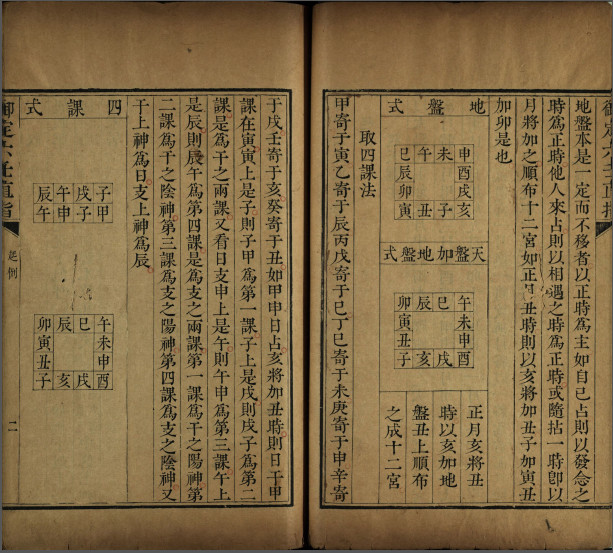 地盤本是一定而不移者以正時爲主如自己占則以發念之
時爲正時他人來占則以相遇之時爲正時或隨拈一時卽以
月將加之順布十二宮如正月丑時則以亥將加丑子如寅丑
加卯是也
地盤式
申未午巳
酉辰
戌卯
亥子丑寅
天盤加地盤式
午巳辰卯
未寅
申丑
酉戌亥子
正月亥將丑
時以亥加地
盤丑上順布
之成十二宮
取四課法
甲寄于寅乙寄于辰丙戊寄于巳丁巳寄于未庚寄于申辛寄
于戌壬寄于亥癸寄于丑如甲申日占亥將加丑時則日干甲
課在寅寅上是子則子甲爲第一課子上是戌則戌子爲第二
課是爲干之兩課又看日支申上是午則午申爲第三課午上
是辰則辰午爲第四課是爲支之兩課第一課爲干之陽神第
二課爲干之陰神第三課爲支之陽神第四課爲支之陰神又
干上神爲日支上神爲辰
四課式
子戌午辰
甲子申午
午巳辰卯
未寅
申丑
酉戌亥子
御定六壬直指
起例
二